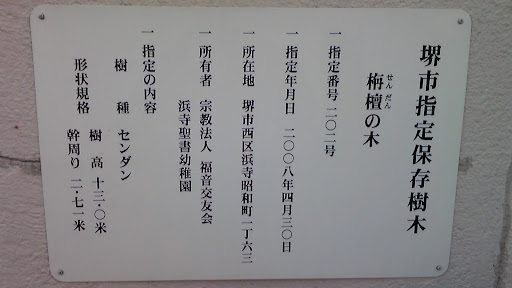 堺市指定保存樹木
せんだん
栴檀の木
一指定番号 二〇二号
一指定年月日 二〇〇八年四月三〇日
一所在地 堺市西区浜寺昭和町一丁六三
一所有者 宗教法人 福音交友会
浜寺聖書幼稚園
一指定の内容
樹種 センダン
形状規格 樹高 十三・〇米
幹周り 二・七一米